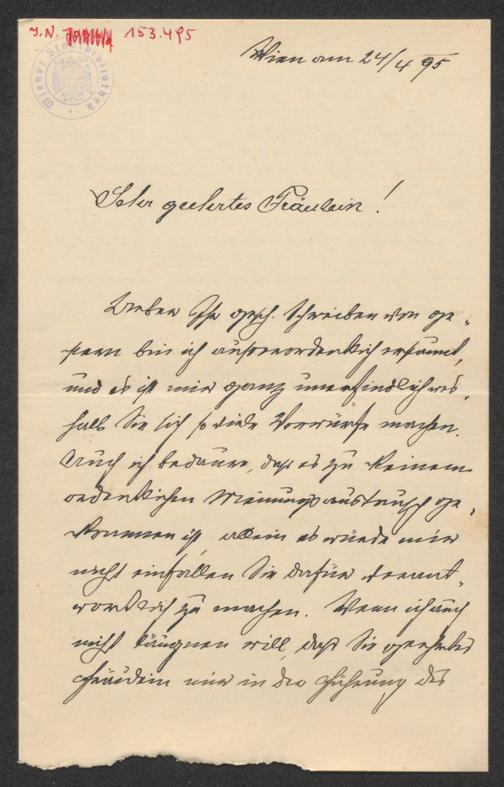 J. N. 153.495
Wiener Stadtbibliothek
Wien am 24/4 95
Sehr geehrtes Fräulein!
Ueber Ihr gesch. Schreiben von ge-
stern bin ich außerordentlich erstaunt,
und es ist mir ganz unerfindlich wes-
halb Sie sich so viele Vorwürfe machen.
Auch ich bedaure, daß es zu keinem
ordentlichen Meinungsaustausch ge-
kommen ist, allein es würde mir
nicht einfallen Sie dafür verant-
wortlich zu machen. Wenn ich auch
nicht läugnen will, daß Sie geehrtes
Fräulein mir in die Führung des